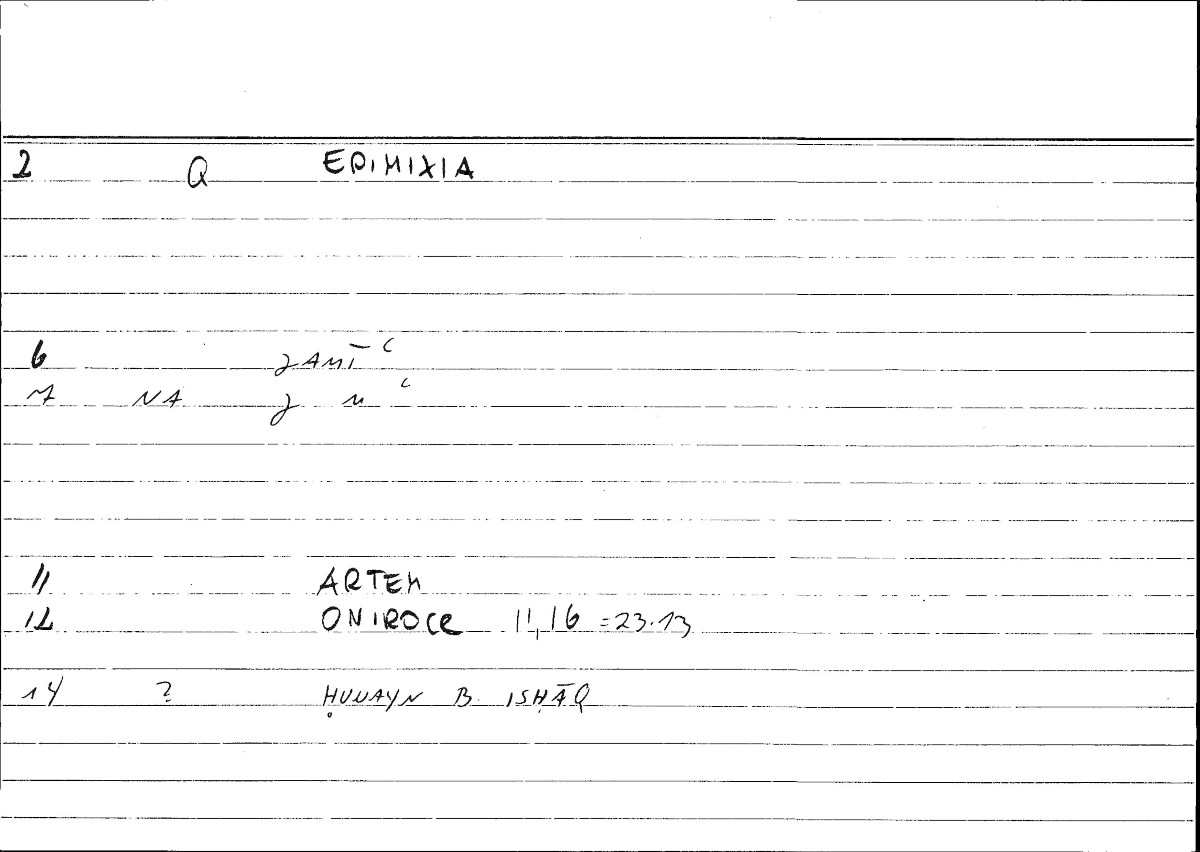 2 Q EPIMIXIA
6 ǧAMĪʿ
7 NA ǧ m ʿ
11 ARTEM
12 ONIROCR 11,16 =23.13
14 ? ḤUNAYN B. ISḤĀQ